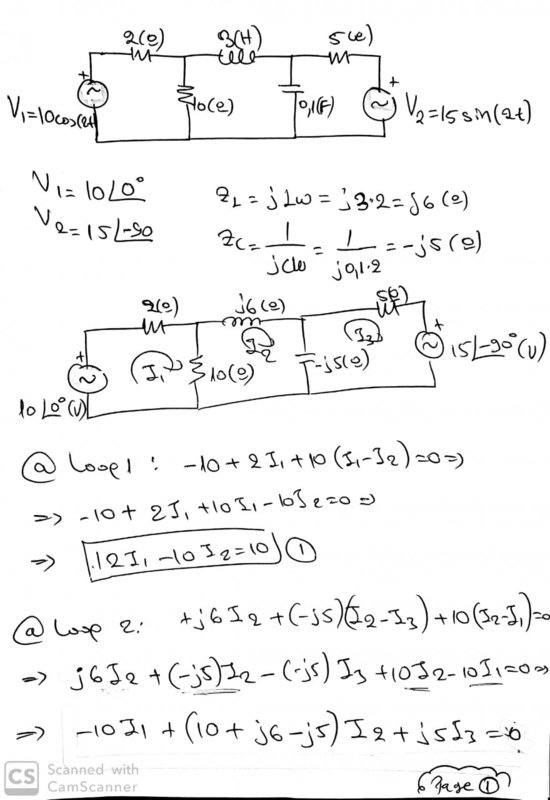 2(Ω) 3(H) 5(Ω)
V₁=10cos(2t) 10(Ω) 0,1(F) V₂=15sin(2t)
V₁= 10∠0°
V₂=15∠-90
ZL = jLω = j3·2 = j6 (Ω)
ZC = 1/jCω = 1/j0,1·2 = -j5(Ω)
2(Ω) j6(Ω) 5(Ω)
10∠0°(V) I₁ 10(Ω) I₂ -j5(Ω) I₃ 15∠-90°(V)
@ Loop 1 : -10+2I₁+10(I₁-I₂)=0 =>
=> -10+ 2I₁ +10I₁ -10I₂=0 =>
=> 12I₁ -10I₂=10 ①
@ Loop 2: +j6I₂+(-j5)(I₂-I₃)+10(I₂-I₁)=0
=> j6I₂+(-j5)I₂-(-j5)I₃+10I₂-10I₁=0=>
=> -10I₁ +(10+j6-j5)I₂+j5I₃=0
CS Scanned with
CamScanner
Page ①